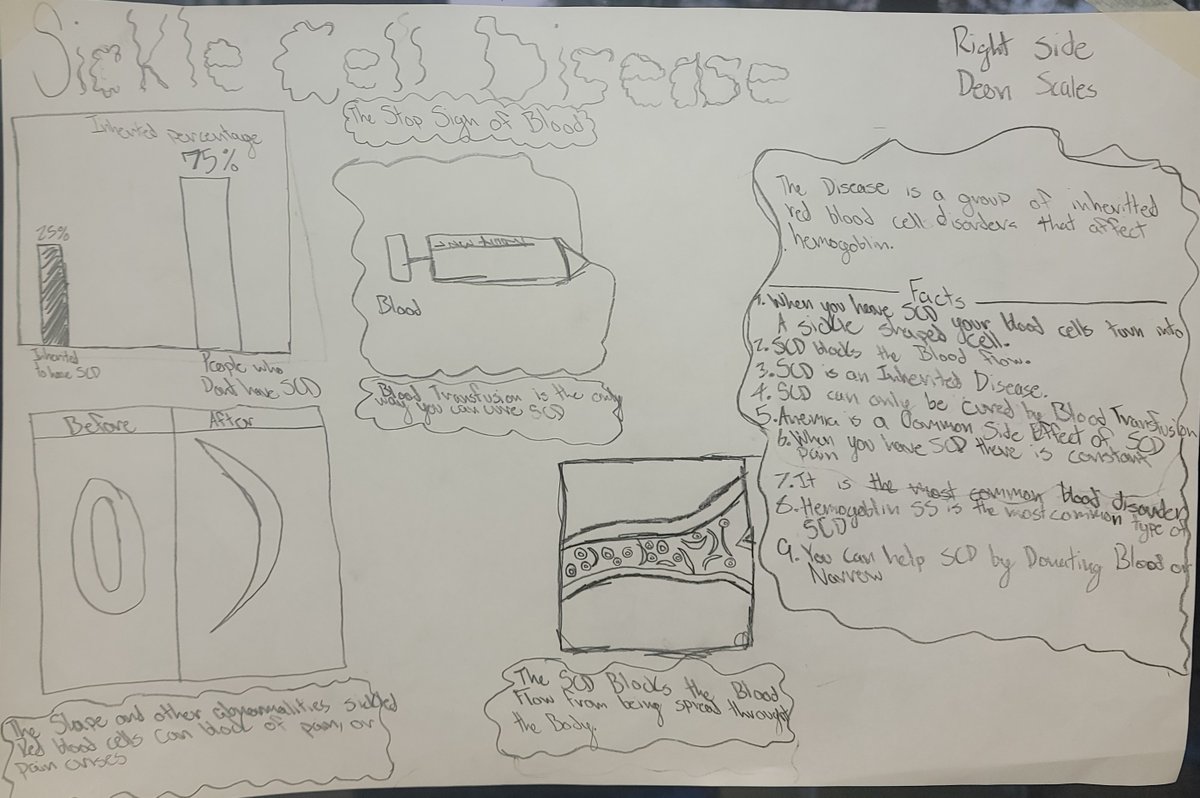 Sickle Cell Disease
Right Side
Deon Scales
The Stop Sign of Blood
Inherited percentage
75%
25%
Inherited
to have SCD
People who
Dont have SCD
Blood
Blood Transfusion is the only
way you can cure SCD
Before
After
The Shape and other abnormalities sickled
Red blood cells can block of pain, or
pain crises
The SCD Blocks the Blood
Flow from being spread through
the Body.
The Disease is a group of inheritted
red blood cell disorders that affect
hemogoblin.
Facts
1. When you have SCD your blood cells turn into
A sickle shaped cell.
2. SCD blocks the Blood Flow.
3. SCD is an Inherited Disease.
4. SCD can only be cured by Blood Transfusion
5. Anemia is a Common Side Effect of SCD
6. When you have SCD there is constant
pain
7. It is the most common blood disorder
8. Hemogoblin SS is the most common type of
SCD
9. You can help SCD by Donating Blood or
Narrow